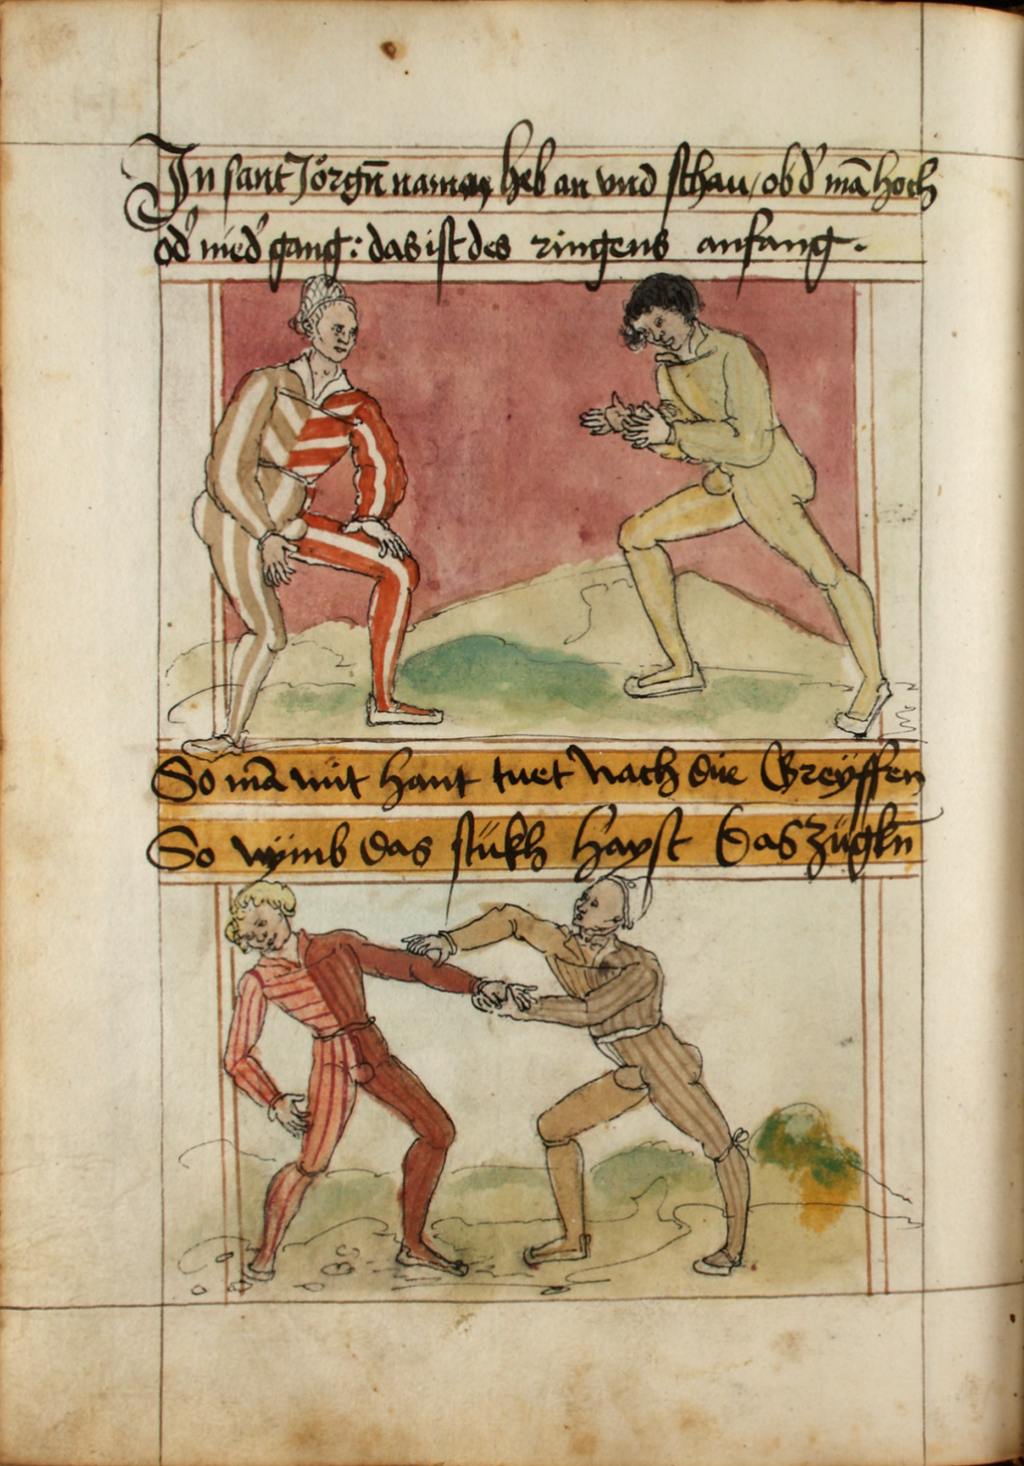 In sant Jörgn̄ namen heb an vnd schau / ob d' mā hoch
od' nied' gang : das ist des ringens anfang .
So mā mit hant tuet Nach die Greÿffen
So wÿmb das stükh Hayst Das Zügkn̄